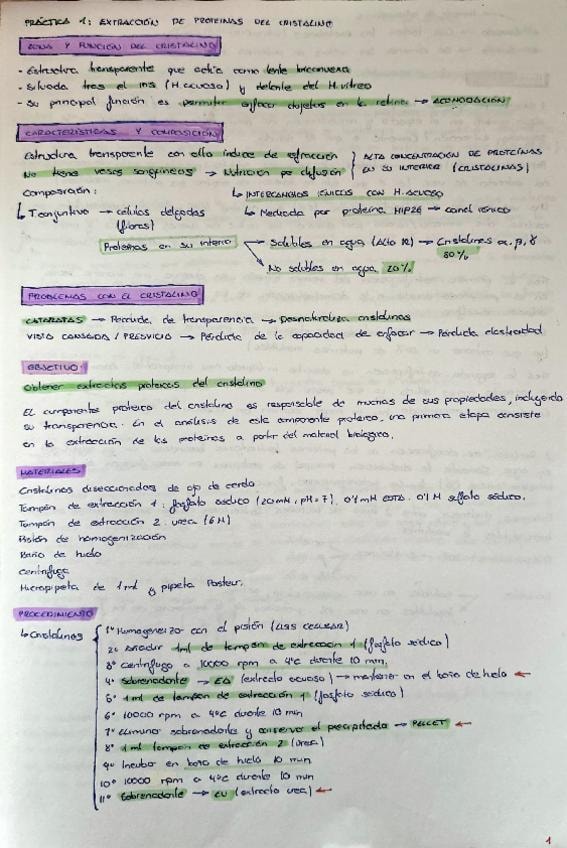 PRÁCTICA 1: EXTRACCIÓN DE PROTEINAS DEL CRISTALINO
ZONA Y FUNCIÓN DEL CRISTALINO
- Estructura transparente que actúa como lente biconvexa
- Situada tras el iris (H. acuoso) y delante del H. vítreo
- Su principal función es permitir enfocar objetos en la retina → ACOMODACIÓN
CARACTERÍSTICAS Y COMPOSICIÓN
Estructura transparente con alto índice de refracción } ALTA CONCENTRACIÓN DE PROTEÍNAS
No tiene vasos sanguíneos → Nutrición por difusión } EN SU INTERIOR (CRISTALINAS)
Composición: ↳ INTERCAMBIOS IÓNICOS CON H. ACUOSO
↳ T. conjuntivo → células delgadas ↳ Mediada por proteína MIP26 → canal iónico
(fibras)
Proteínas en su interior → Solubles en agua (Alto IR) → Cristalinas α, β, γ
80%
→ No solubles en agua 20%
PROBLEMAS CON EL CRISTALINO
CATARATAS → Pérdida de transparencia → Desnaturaliza cristalinas
VISTA CANSADA / PRESVICIO → Pérdida de la capacidad de enfocar → Pérdida elasticidad
OBJETIVO:
Obtener extractos proteicos del cristalino
El componente proteico del cristalino es responsable de muchas de sus propiedades, incluyendo
su transparencia. En el análisis de este componente proteico, una primera etapa consiste
en la extracción de las proteínas a partir del material biológico.
MATERIALES
Cristalinos diseccionados de ojo de cerdo
Tampón de extracción 1: fosfato sódico (20mM, pH=7), 0'1 mM EDTA, 0'1 M sulfato sódico.
Tampón de extracción 2: urea (6M)
Pistón de homogenización
Baño de hielo
Centrífuga
Micropipeta de 1 ml y pipeta Pasteur.
PROCEDIMIENTO
↳ Cristalinos 1º Homogeneizo con el pistón (LISIS CELULAR)
2º Añadir 1ml de tampón de extracción 1 (fosfato sódico)
3º Centrifugo a 10000 rpm a 4ºC durante 10 min.
4º Sobrenadante → EA (extracto acuoso) → mantener en el baño de hielo ←
5º 1 ml de tampón de extracción 1 (fosfato sódico)
6º 10000 rpm a 4ºC durante 10 min
7º Elimino sobrenadante y conservo el precipitado → PELLET ←
8º 1 ml tampón de extracción 2 (urea)
9º Incubo en baño de hielo 10 min
10º 10000 rpm a 4ºC durante 10 min
11º Sobrenadante → EU (extracto urea) ←
1